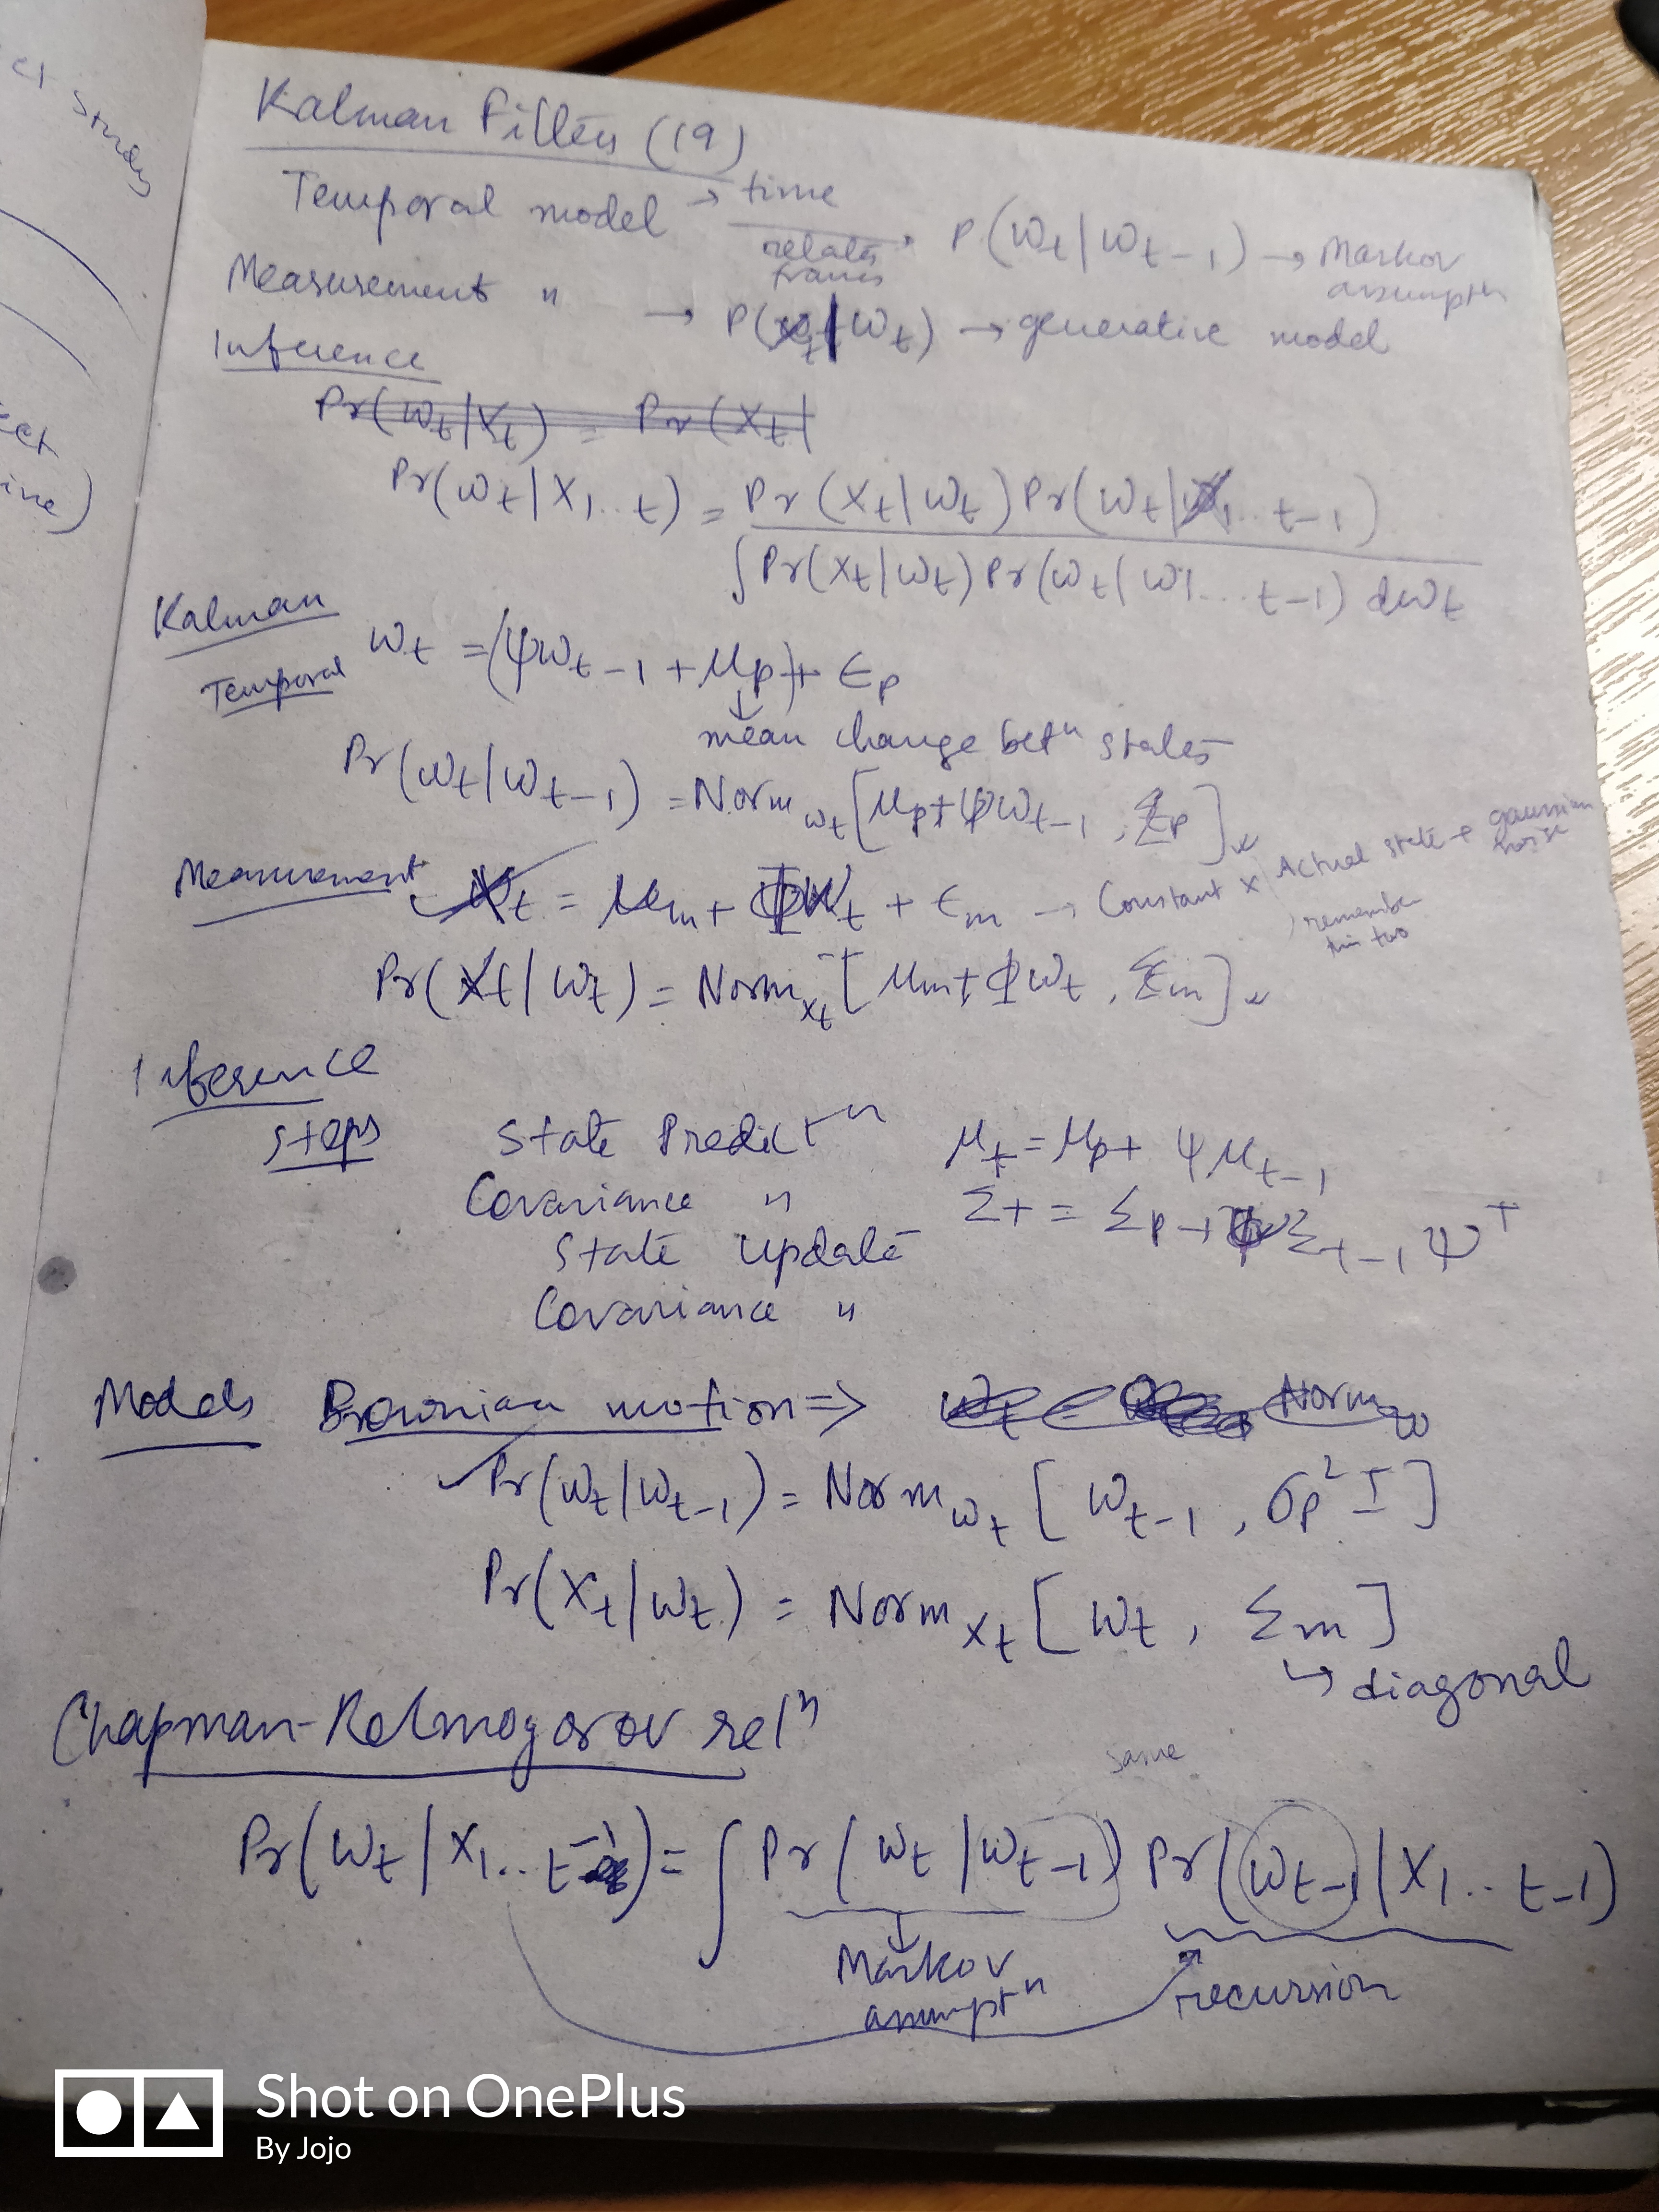 ct study
ect
ine)
Kalman Filters (19)
Temporal model → time
relates frames → P(ωt|ωt-1) → Markov assumptn
Measurement " → P(xt|ωt) → generative model
Inference
Pr(ωt|Xt) = Pr(Xt|
Pr(ωt|X1..t) = Pr(Xt|ωt) Pr(ωt|X1..t-1)
∫Pr(Xt|ωt) Pr(ωt|ω1...t-1) dωt
Kalman
Temporal ωt = (ψωt-1 + μp) + ϵp
↓
mean change betn states
Pr(ωt|ωt-1) = Normωt[μp+ψωt-1, Σp]
Measurement Xt = μm + Φωt + ϵm → Constant x Actual state + gaussian noise
remember this two
Pr(Xt|ωt) = Normxt[μm+Φωt, Σm]
Inference
steps State Predictn μt = μp + ψμt-1
Covariance " Σ+ = Σp + ψΣt-1ψT
State update
Covariance "
Models Brownian motion => Normω
Pr(ωt|ωt-1) = Normωt[ωt-1, σp²I]
Pr(Xt|ωt) = Normxt[ωt, Σm]
↳ diagonal
Chapman-Kolmogorov reln
same
Pr(ωt|X1..t-1) = ∫Pr(ωt|ωt-1) Pr(ωt-1|X1..t-1)
↓
Markov assumptn
recursion
Shot on OnePlus
By Jojo